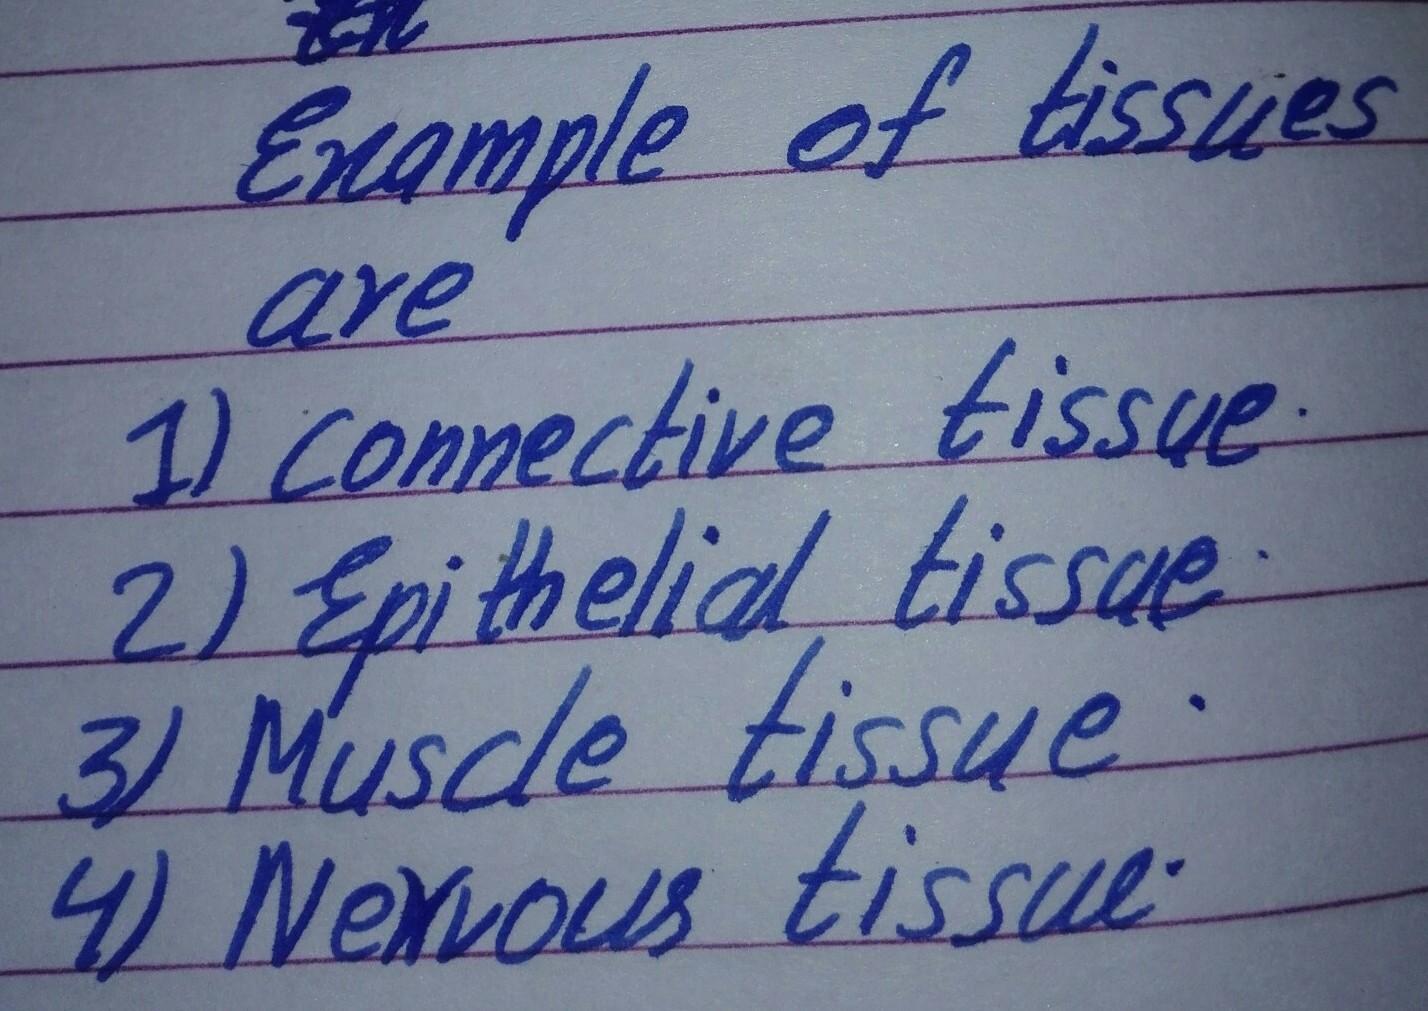 Example of tissues
are
1) connective tissue.
2) Epithelial tissue.
3) Muscle tissue.
4) Nervous tissue.